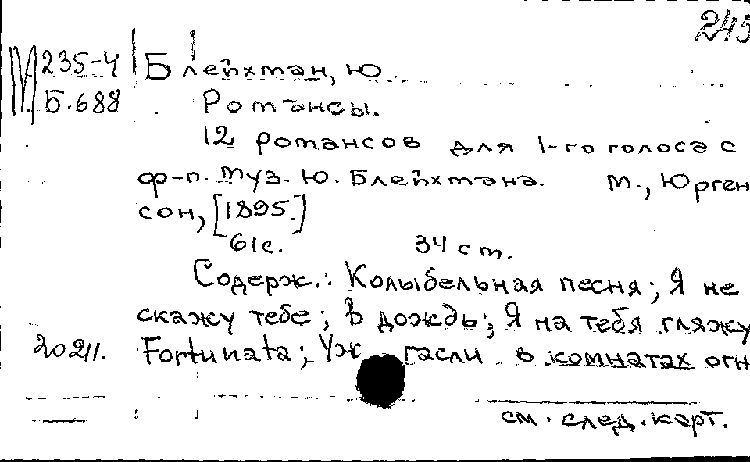 245
М 235-4 Блейхман, Ю.
Б.688 Романсы.
12 романсов для 1-го голоса с
ф-п. Муз. Ю. Блейхмана. М., Юрген
сон, [1895.]
61с. 34 см.
Содерж.: Колыбельная песня; Я не
скажу тебе; В дождь; Я на тебя гляжу
20211. Fortunata; Уж гасли в комнатах огн
см. след. карт.